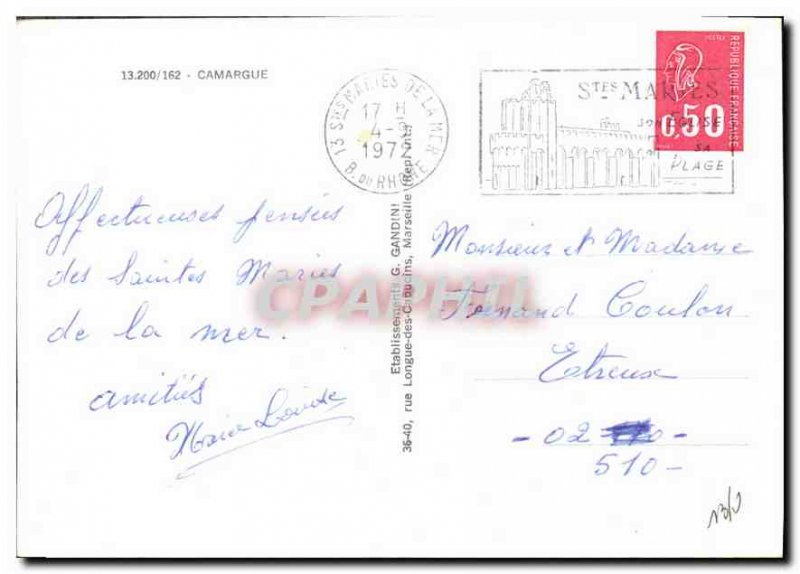 13.200/162 - CAMARGUE
13 STES MARIES DE LA MER
17 H
4-9
1972
B. DU RHÔNE
STES MARIES
SON EGLISE
SA
PLAGE
POSTES
REPUBLIQUE FRANÇAISE
0,50
Affectueuses pensées
des Saintes Maries
de la mer.
amitiés
Marie Louise
Etablissements G. GANDINI
36-40, rue Longue-des-Capucins, Marseille (Reprint)
Monsieur et Madame
Fernand Coulon
Etreux
- 02 -
510 -
CPAPHIL